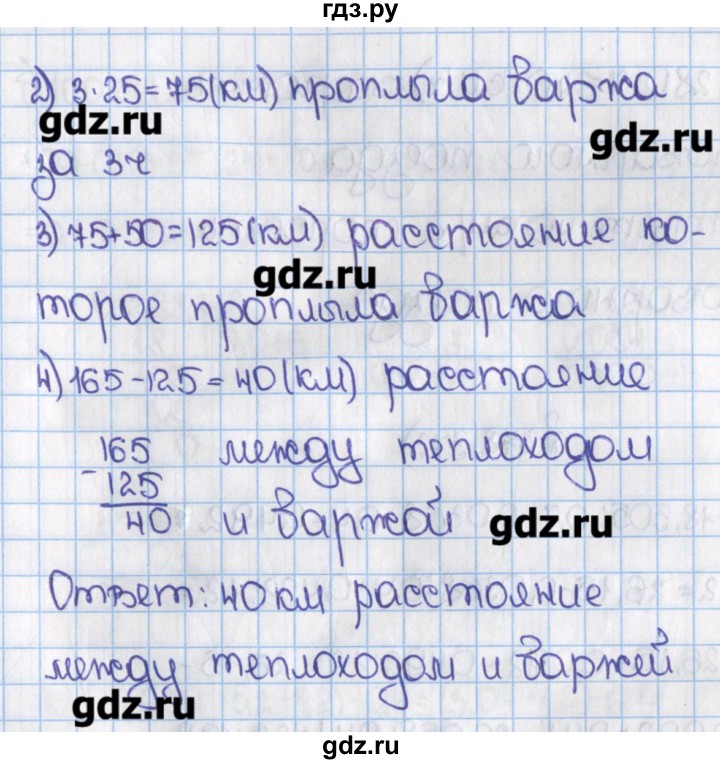 гдз.ру
2) 3·25=75(км) проплыла баржа
gdz.ru
gdz.ru
за 3ч
3) 75+50=125(км) расстояние ко-
gdz.ru
торое проплыла баржа
4) 165-125=40(км) расстояние
165 между теплоходом
- 125
40 и баржой gdz.ru
Ответ: 40 км расстояние
между теплоходом и баржей
gdz.ru
gdz.ru